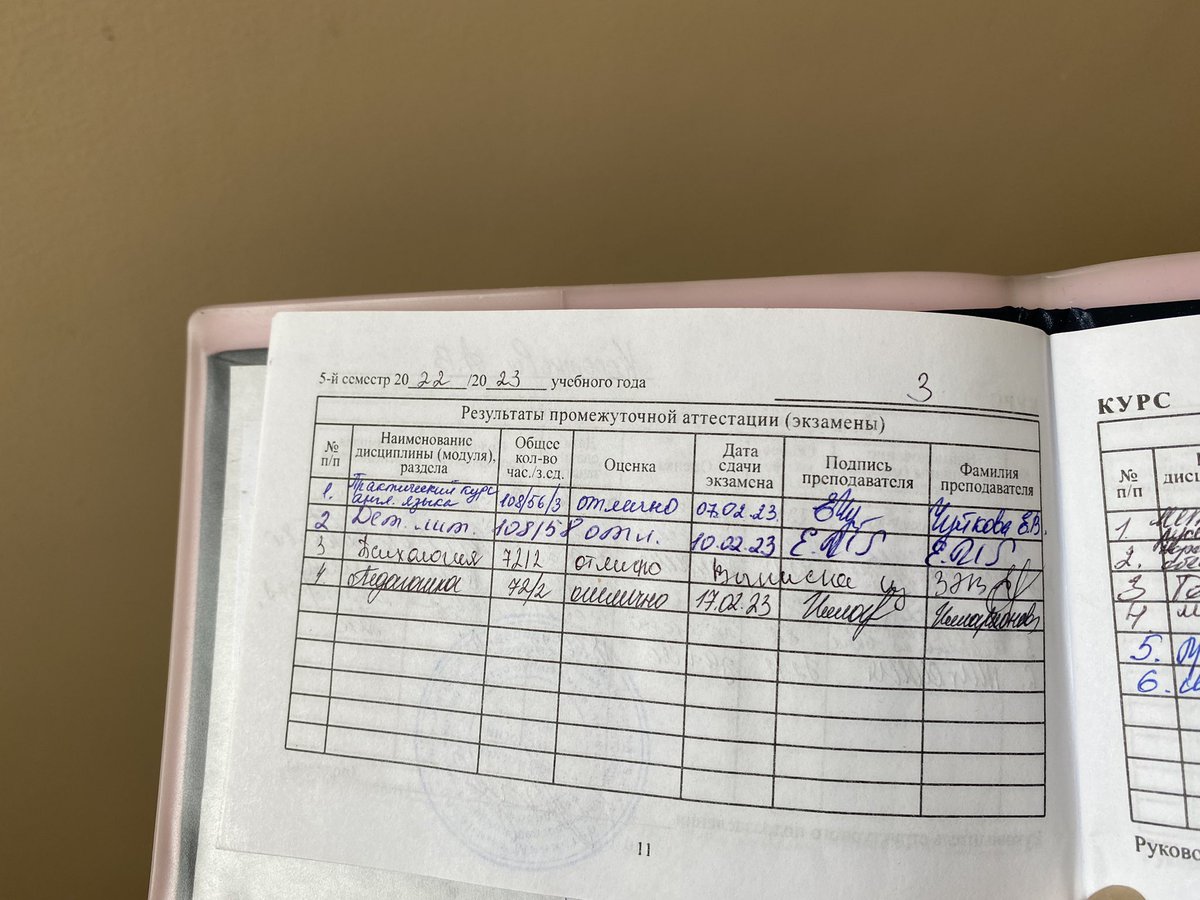 5-й семестр 2022/2023 учебного года 3
Результаты промежуточной аттестации (экзамены)
№ п/п Наименование дисциплины (модуля), раздела Общее кол-во час./з.ед. Оценка Дата сдачи экзамена Подпись преподавателя Фамилия преподавателя
1. Практический курс англ. языка 108/56/3 отлично 07.02.23 Чуйкова Е.В.
2 Дет. лит. 108/58 отл. 10.02.23
3 Психология 72/2 отлично Выписка из
4. Педагогика 72/2 отлично 17.02.23
11
КУРС
№ п/п
1.
2.
3
4
5.
6.